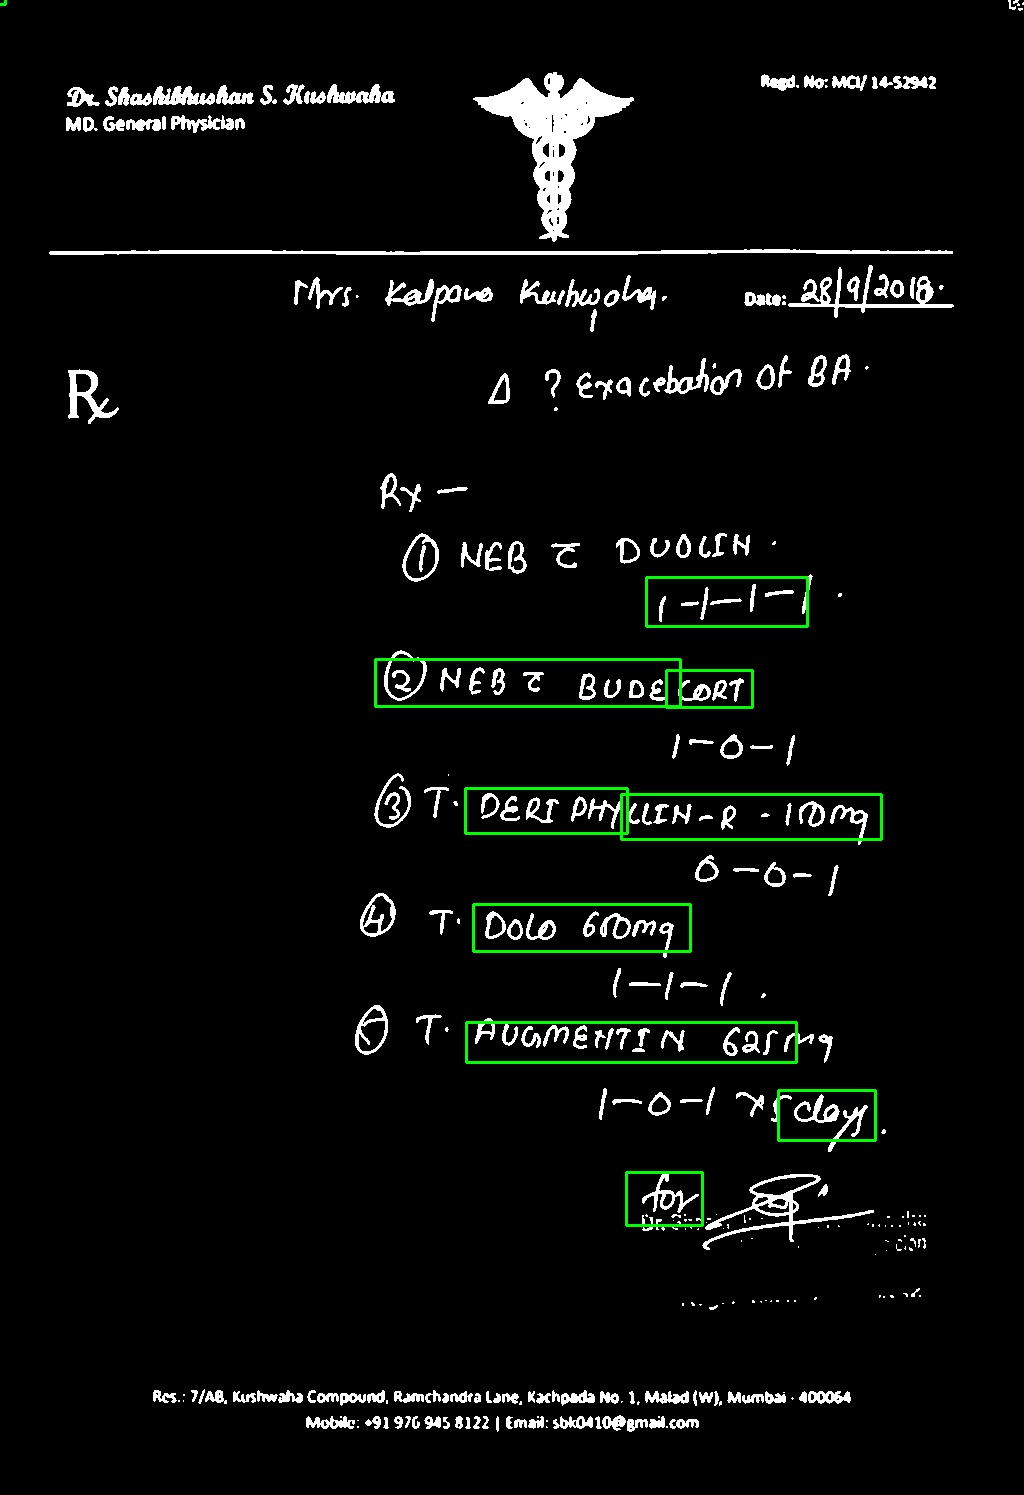 Dr. Shashibhushan S. Kushwaha
MD. General Physician
Regd. No: MCI/ 14-52942
Mrs. Kalpana Kushwaha.
Date: 28/9/2018.
Rx
Δ ? Exacebation of BA.
Rx —
① NEB c̄ DUOLIN.
1-1-1-1.
② NEB c̄ BUDECORT
1-0-1
③ T. DERIPHYLLIN-R - 150mg
0-0-1
④ T. DOLO 650mg
1-1-1.
⑤ T. AUGMENTIN 625mg
1-0-1 x5 days.
for
Dr.
Res.: 7/AB, Kushwaha Compound, Ramchandra Lane, Kachpada No. 1, Malad (W), Mumbai - 400064
Mobile: +91 976 945 8122 | Email: sbk0410@gmail.com